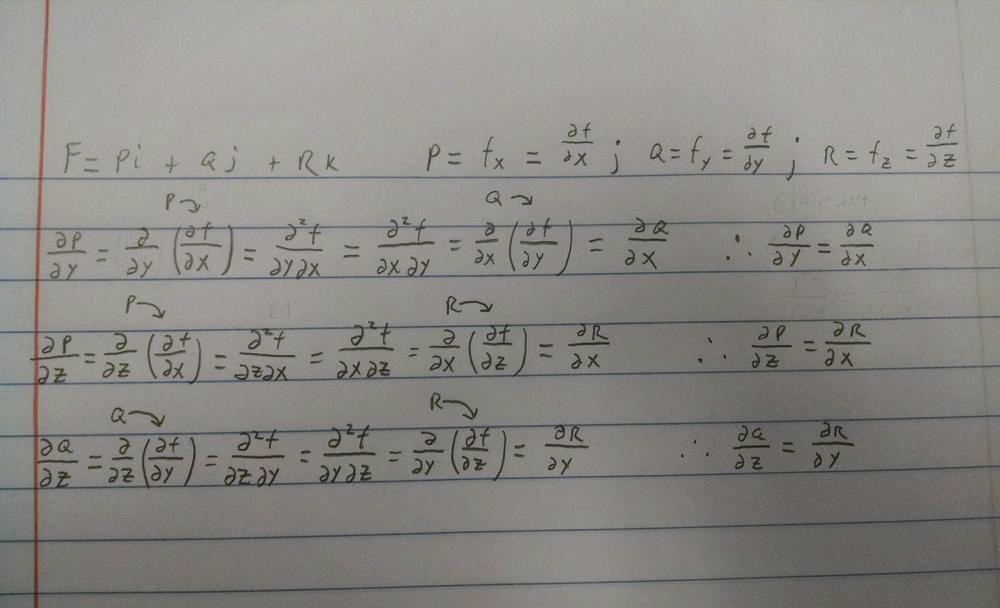 F = Pi + Qj + Rk P = f_x = ∂f/∂x ; Q = f_y = ∂f/∂y ; R = f_z = ∂f/∂z
P→ Q→ Clairaut
∂P/∂y = ∂/∂y (∂f/∂x) = ∂²f/∂y∂x = ∂²f/∂x∂y = ∂/∂x (∂f/∂y) = ∂Q/∂x ∴ ∂P/∂y = ∂Q/∂x
P→ R→
∂P/∂z = ∂/∂z (∂f/∂x) = ∂²f/∂z∂x = ∂²f/∂x∂z = ∂/∂x (∂f/∂z) = ∂R/∂x ∴ ∂P/∂z = ∂R/∂x
Q→ R→
∂Q/∂z = ∂/∂z (∂f/∂y) = ∂²f/∂z∂y = ∂²f/∂y∂z = ∂/∂y (∂f/∂z) = ∂R/∂y ∴ ∂Q/∂z = ∂R/∂y